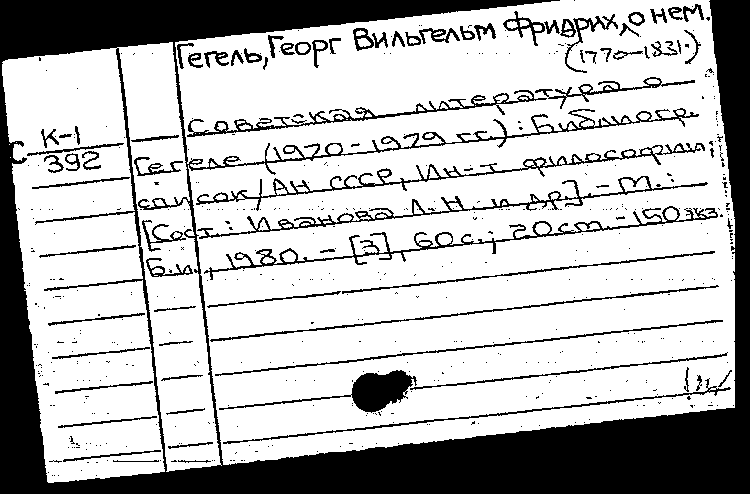 Гегель, Георг Вильгельм Фридрих, о нем.
(1770-1831.)
Советская литература о
С К-1
392
Гегеле (1970-1979 гг.): Библиогр.
список/АН СССР, Ин-т философии;
[Сост.: Иванова Л.Н. и др.]. - М.:
Б.и., 1980. - [3], 60 с.; 20 см. - 150 экз.